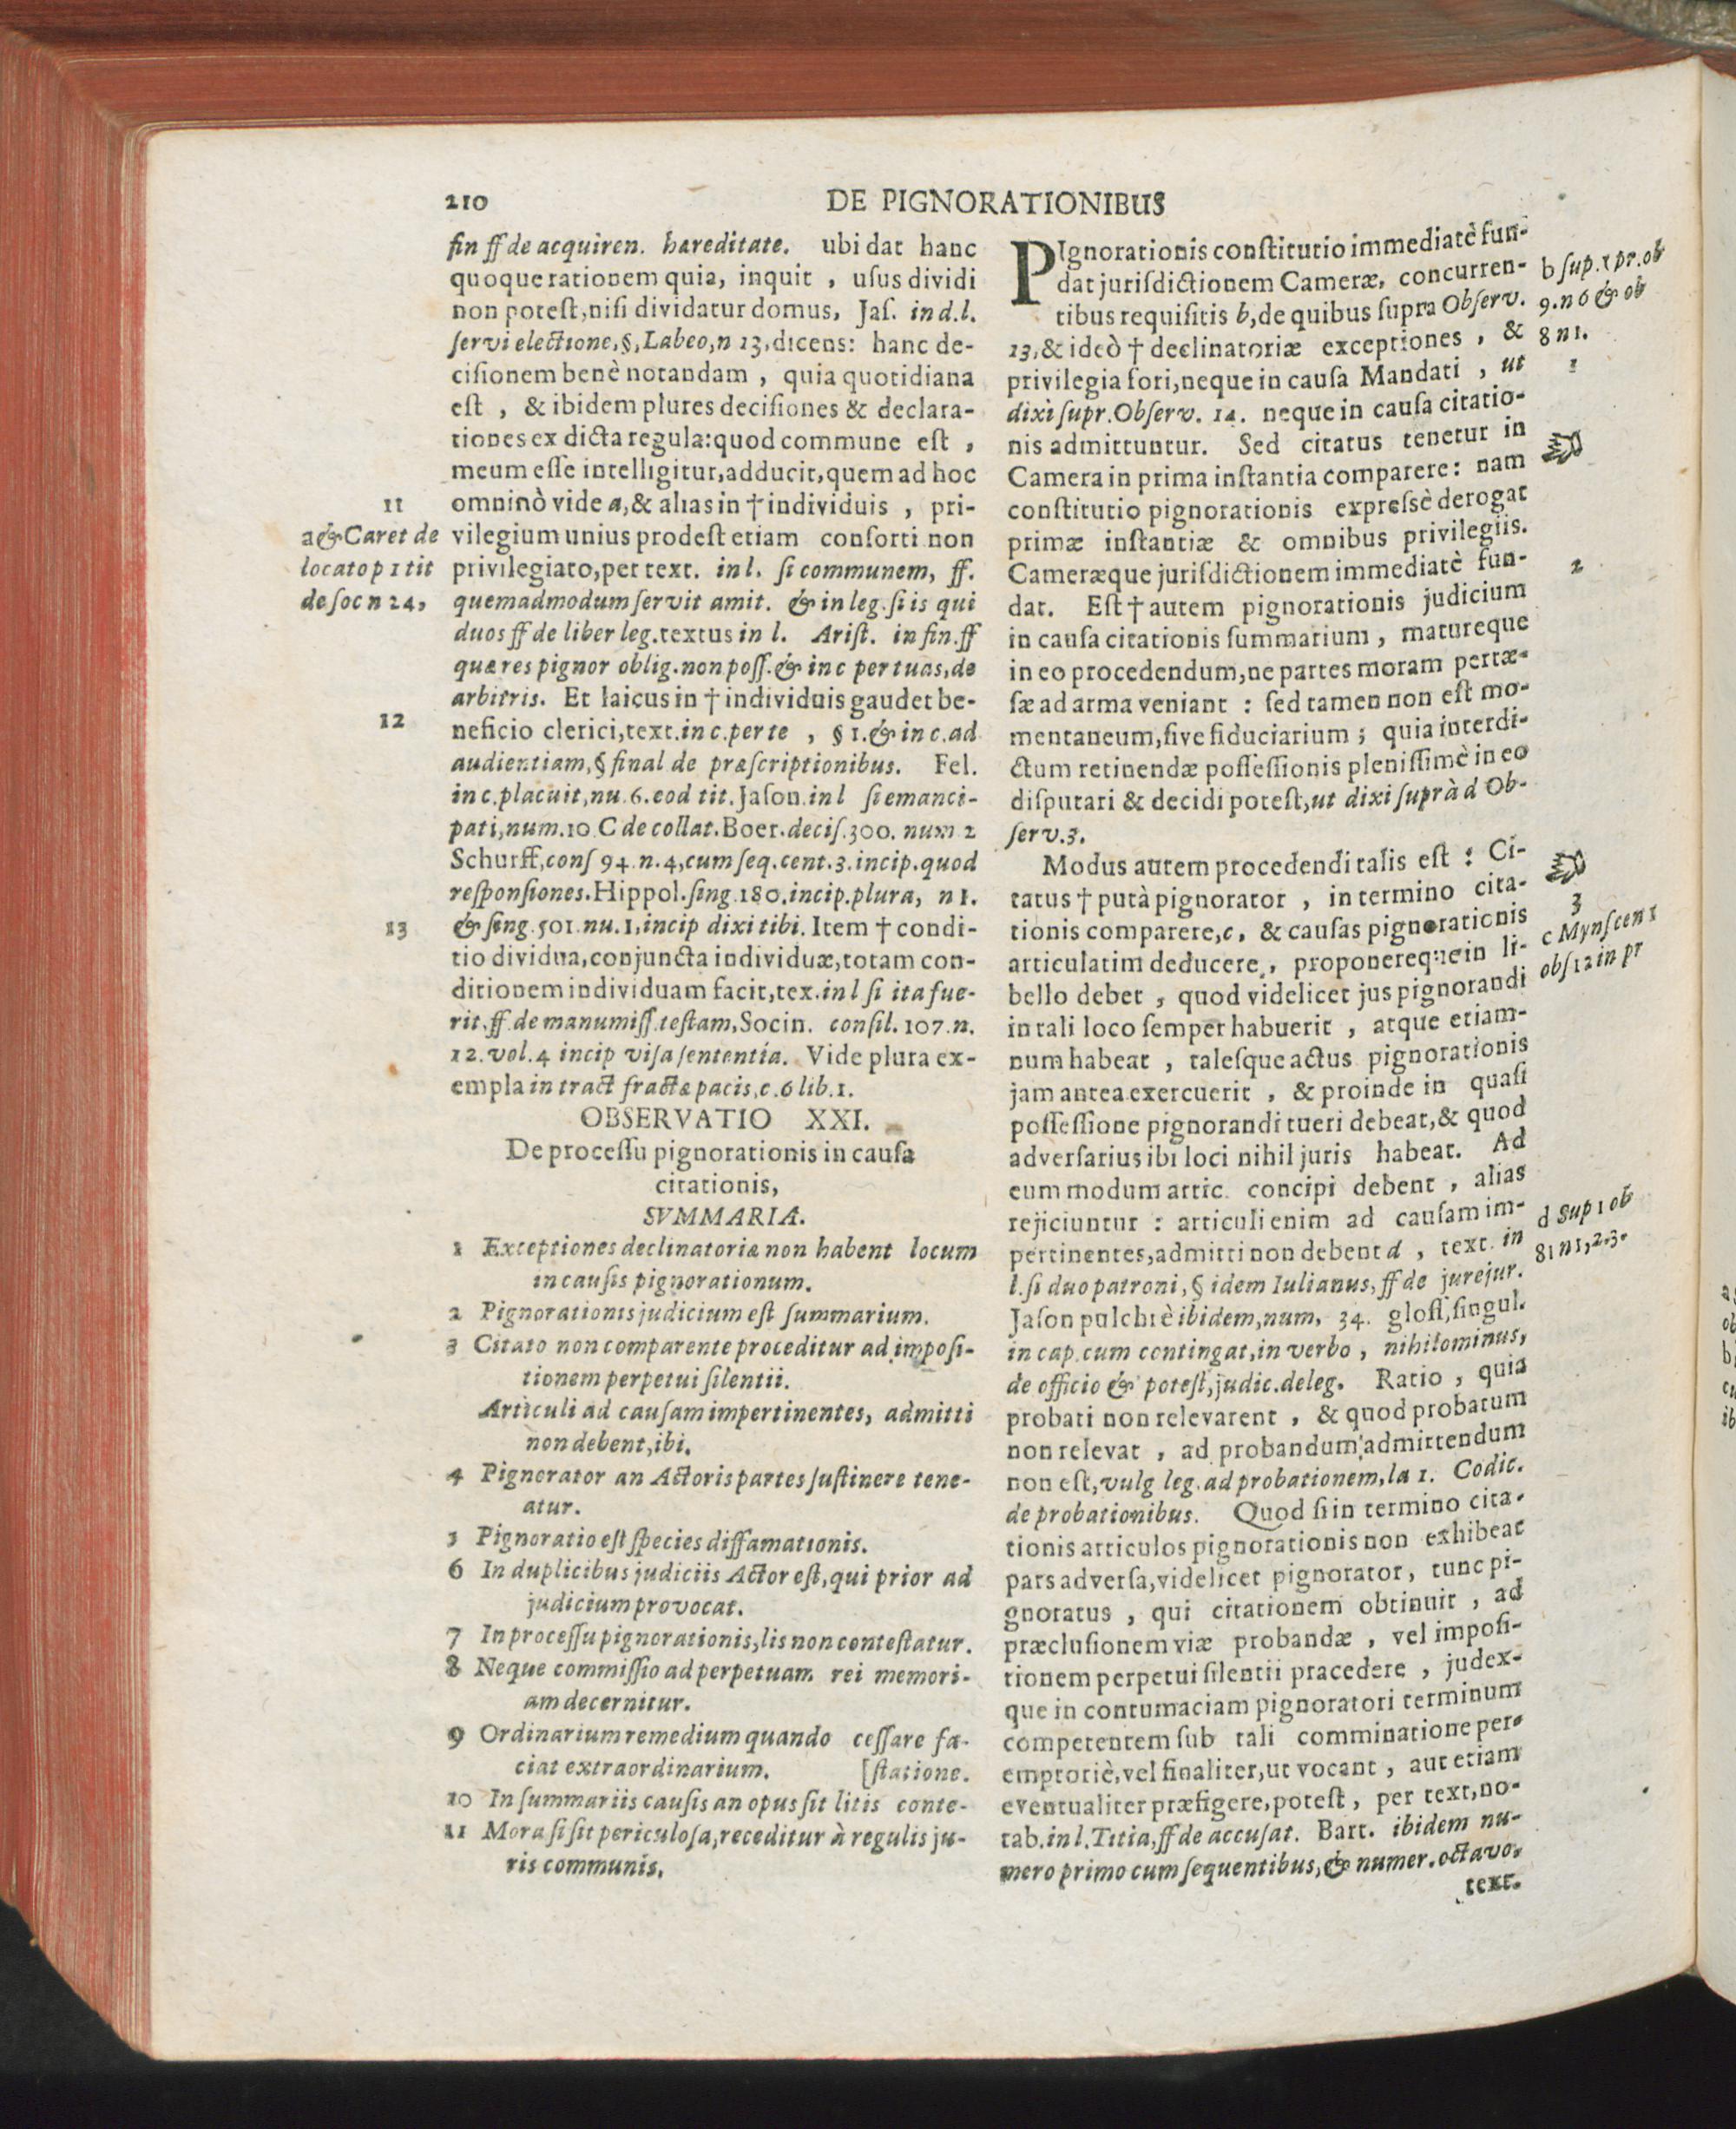 210
DE PIGNORATIONIBUS
fin ff de acquiren. hæreditate. ubi dat hanc
quoque rationem quia, inquit , uſus dividi
non poteſt, niſi dividatur domus, Jaſ. in d.l.
ſervi electione,§, Labeo,n 13, dicens: hanc de-
ciſionem benè notandam , quia quotidiana
eſt , & ibidem plures deciſiones & declara-
tiones ex dicta regula: quod commune eſt ,
meum eſſe intelligitur, adducit, quem ad hoc
11
omninò vide a, & alias in † individuis , pri-
a & Caret de
vilegium unius prodeſt etiam conſorti non
locato p 1 tit
privilegiato, per text. in l. ſi communem, ff.
de ſoc n 24,
quemadmodum ſervit amit. & in leg. ſi is qui
duos ff de liber leg. textus in l. Ariſt. in fin. ff
quæ res pignor oblig. non poſſ. & in c per tuas, de
arbitris. Et laicus in † individuis gaudet be-
12
neficio clerici, text. in c. per te , § 1. & in c. ad
audientiam, § final de præſcriptionibus. Fel.
in c. placuit, nu. 6. eod tit. Jaſon. in l ſi emanci-
pati, num. 10 C de collat. Boer. deciſ. 300. num 2
Schurff, conſ 94. n. 4, cum ſeq. cent. 3. incip. quod
reſponſiones. Hippol. ſing. 180. incip. plura, n 1.
13
& ſing. 501. nu. 1, incip dixi tibi. Item † condi-
tio dividua, conjuncta individuæ, totam con-
ditionem individuam facit, tex. in l ſi ita fue-
rit. ff. de manumiſſ. teſtam, Socin. conſil. 107. n.
12. vol. 4 incip viſa ſententia. Vide plura ex-
empla in tract fractæ pacis, c. 6 lib. 1.
OBSERVATIO XXI.
De proceſſu pignorationis in cauſa
citationis,
SVMMARIA.
1 Exceptiones declinatoriæ non habent locum
in cauſis pignorationum.
2 Pignorationis judicium eſt ſummarium.
3 Citato non comparente proceditur ad impoſi-
tionem perpetui ſilentii.
Articuli ad cauſam impertinentes, admitti
non debent, ibi.
4 Pignorator an Actoris partes ſuſtinere tene-
atur.
5 Pignoratio eſt ſpecies diffamationis.
6 In duplicibus judiciis Actor eſt, qui prior ad
judicium provocat.
7 In proceſſu pignorationis, lis non conteſtatur.
8 Neque commiſſio ad perpetuam rei memori-
am decernitur.
9 Ordinarium remedium quando ceſſare fa-
ciat extraordinarium. [ſtatione.
10 In ſummariis cauſis an opus ſit litis conte-
11 Mora ſi ſit periculoſa, receditur à regulis ju-
ris communis.
PIgnorationis conſtitutio immediatè fun-
dat jurisdictionem Cameræ, concurren-
b ſup. 1 pr. ob
tibus requiſitis b, de quibus ſupra Obſerv.
9. n 6 & ob
13, & ideò † declinatoriæ exceptiones , &
8 n 1.
privilegia fori, neque in cauſa Mandati , ut
1
dixi ſupr. Obſerv. 14. neque in cauſa citatio-
nis admittuntur. Sed citatus tenetur in
Camera in prima inſtantia comparere: nam
conſtitutio pignorationis expreſsè derogat
primæ inſtantiæ & omnibus privilegiis.
Cameræque juriſdictionem immediatè fun-
2
dat. Eſt † autem pignorationis judicium
in cauſa citationis ſummarium , matureque
in eo procedendum, ne partes moram pertæ-
ſæ ad arma veniant : ſed tamen non eſt mo-
mentaneum, ſive fiduciarium ; quia interdi-
ctum retinendæ poſſeſſionis pleniſſimè in eo
diſputari & decidi poteſt, ut dixi ſuprà d Ob-
ſerv. 3.
Modus autem procedendi talis eſt : Ci-
tatus † putà pignorator , in termino cita-
3
tionis comparere, c, & cauſas pignorationis
c Mynſ cen 1
articulatim deducere , proponereque in li-
obſ 12 in pr
bello debet , quod videlicet jus pignorandi
in tali loco ſemper habuerit , atque etiam-
num habeat , taleſque actus pignorationis
jam antea exercuerit , & proinde in quaſi
poſſeſſione pignorandi tueri debeat, & quod
adverſarius ibi loci nihil juris habeat. Ad
eum modum artic. concipi debent , alias
rejiciuntur : articuli enim ad cauſam im-
d Sup 1 ob
pertinentes, admitti non debent d , text. in
81 n 1, 2. 3.
l. ſi duo patroni, § idem Iulianus, ff de jurejur.
Jaſon pulchrè ibidem, num. 34. gloſſ, ſingul.
in cap. cum contingat, in verbo , nihilominus,
de officio & poteſt, judic. deleg. Ratio , quia
probati non relevarent , & quod probatum
non relevat , ad probandum admittendum
non eſt, vulg leg. ad probationem, la 1. Codic.
de probationibus. Quod ſi in termino cita-
tionis articulos pignorationis non exhibeat
pars adverſa, videlicet pignorator, tunc pi-
gnoratus , qui citationem obtinuit , ad
præcluſionem viæ probandæ , vel impoſi-
tionem perpetui ſilentii præcedere , judex-
que in contumaciam pignoratori terminum
competentem ſub tali comminatione per-
emptoriè, vel finaliter, ut vocant , aut etiam
eventualiter præfigere, poteſt , per text, no-
tab. in l. Titia, ff de accuſat. Bart. ibidem nu-
mero primo cum ſequentibus, & numer. octavo.
text.